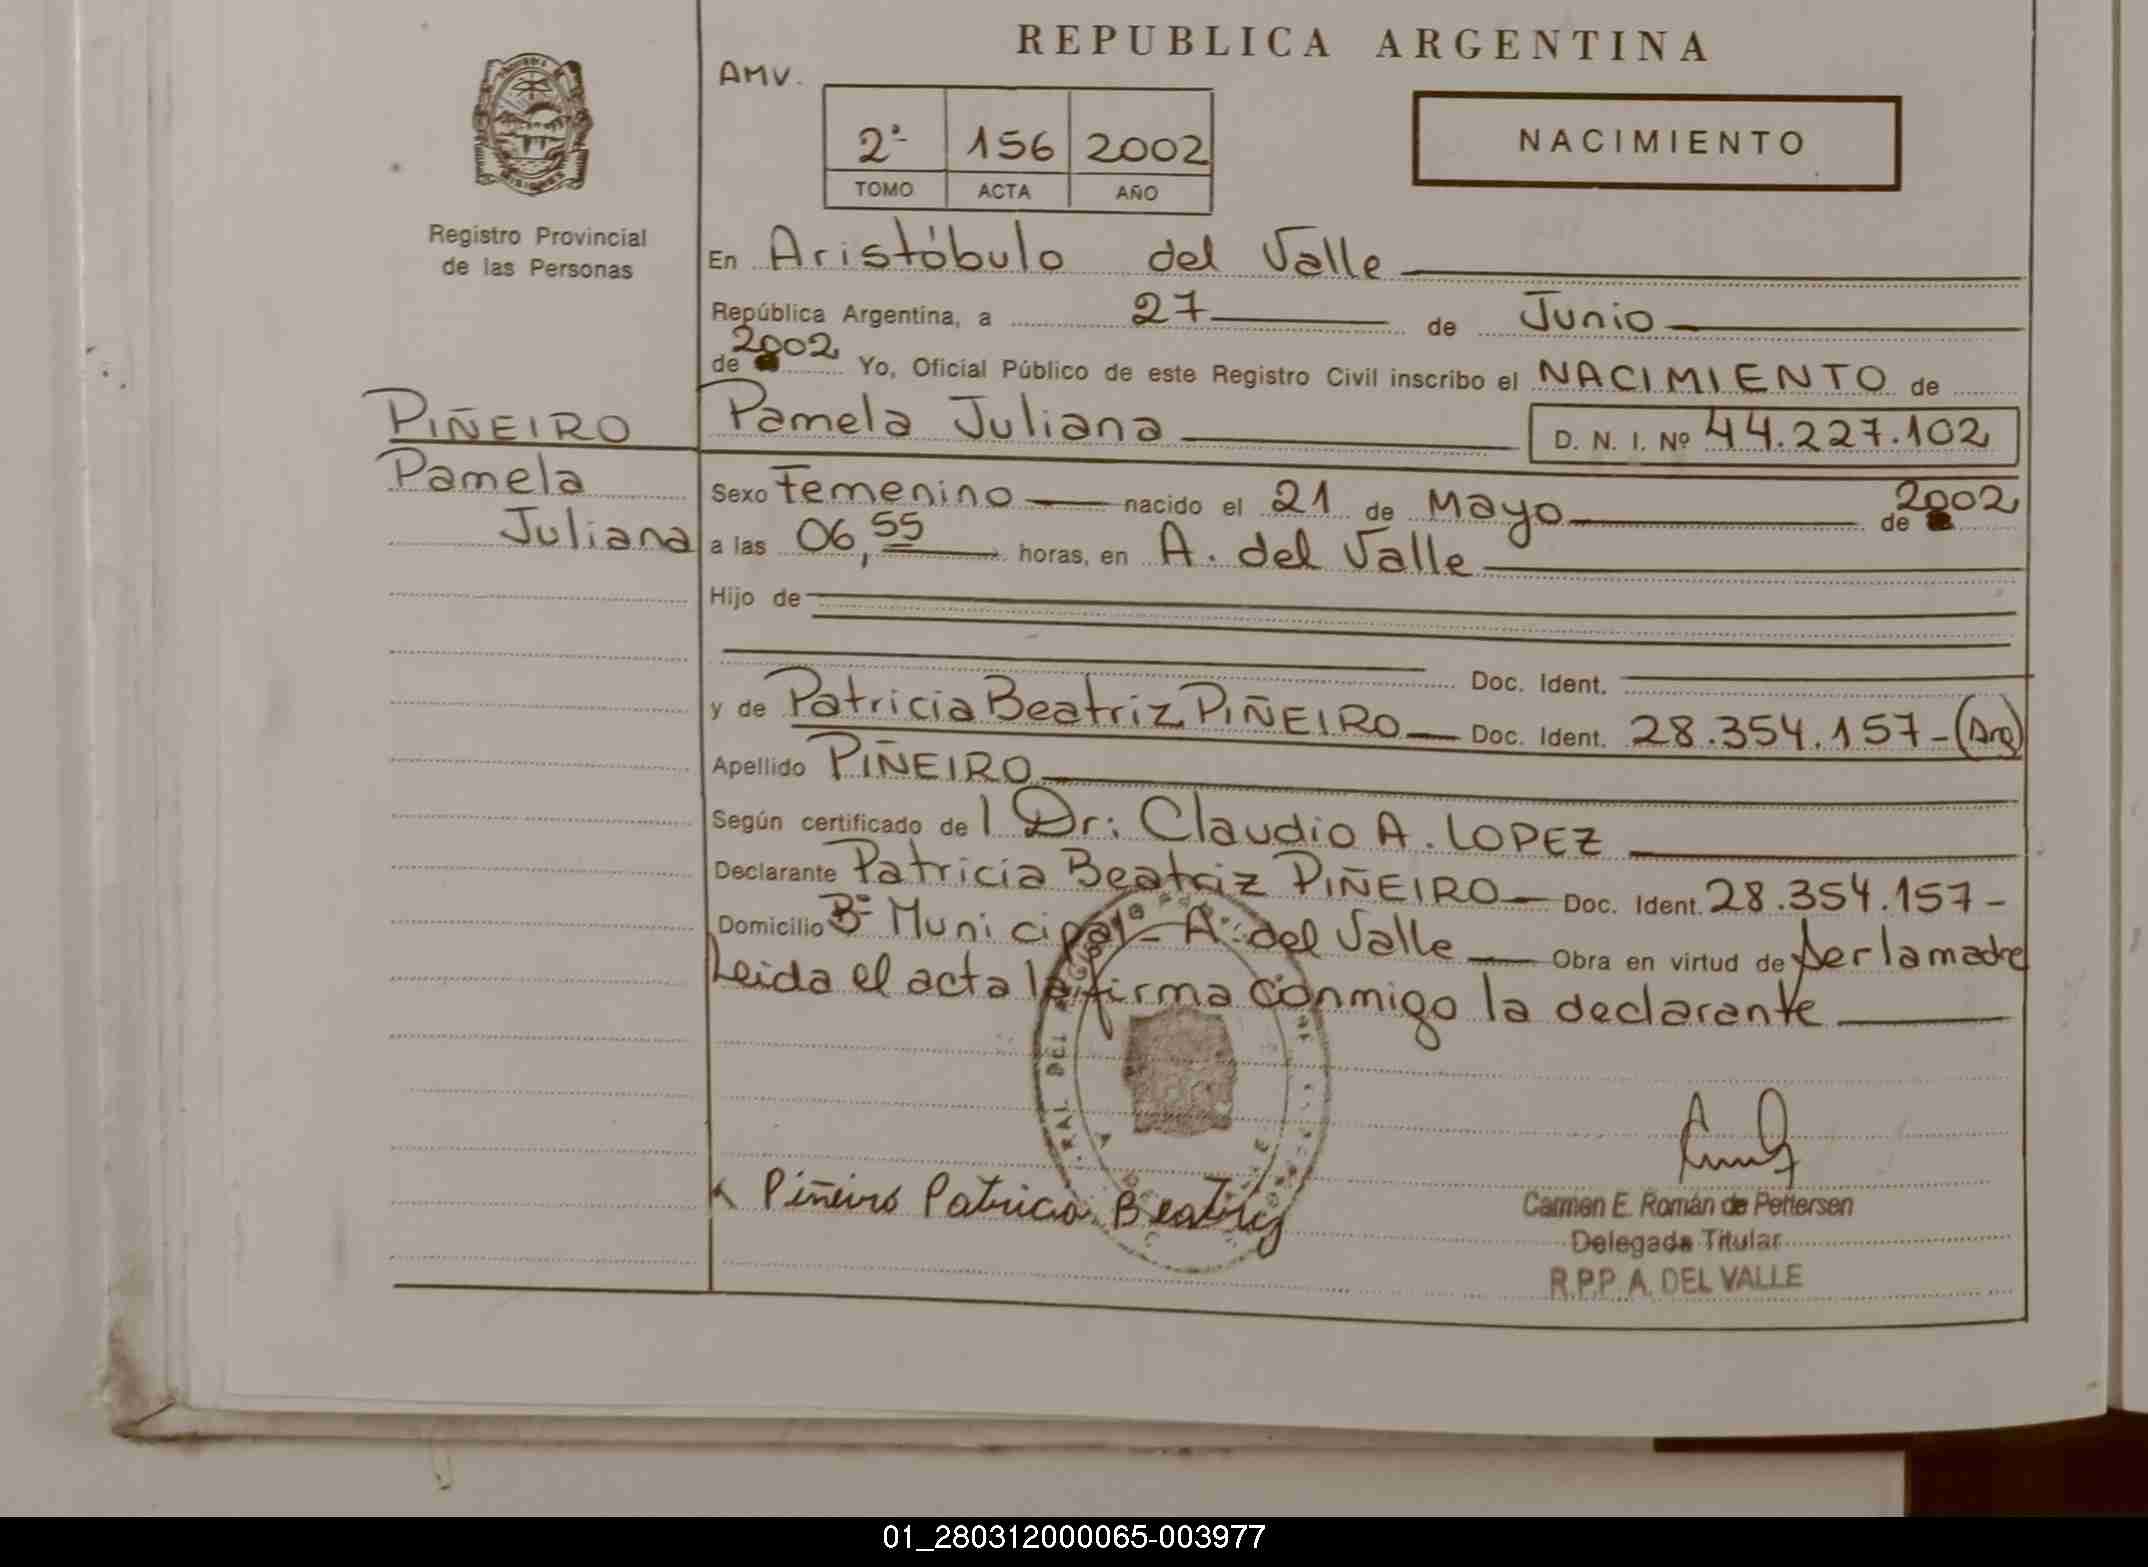 REPUBLICA ARGENTINA
AMV.
2ª 156 2002
TOMO ACTA AÑO
NACIMIENTO
Registro Provincial
de las Personas
En Aristóbulo del Valle
República Argentina, a 27 de Junio
de 2002 Yo, Oficial Público de este Registro Civil inscribo el NACIMIENTO de
PIÑEIRO
Pamela
Juliana
Pamela Juliana D. N. I. Nº 44.227.102
Sexo Femenino nacido el 21 de Mayo de 2002
a las 06,55 horas, en A. del Valle
Hijo de
Doc. Ident.
y de Patricia Beatriz PIÑEIRO Doc. Ident. 28.354.157-(Arg)
Apellido PIÑEIRO
Según certificado de l Dr: Claudio A. LOPEZ
Declarante Patricia Beatriz PIÑEIRO Doc. Ident. 28.354.157-
Domicilio Bº Municipal- A. del Valle Obra en virtud de ser la madre
Leida el acta la firma conmigo la declarante
Piñeiro Patricia Beatriz
Carmen E. Román de Pettersen
Delegada Titular
R.P.P A. DEL VALLE
01_280312000065-003977